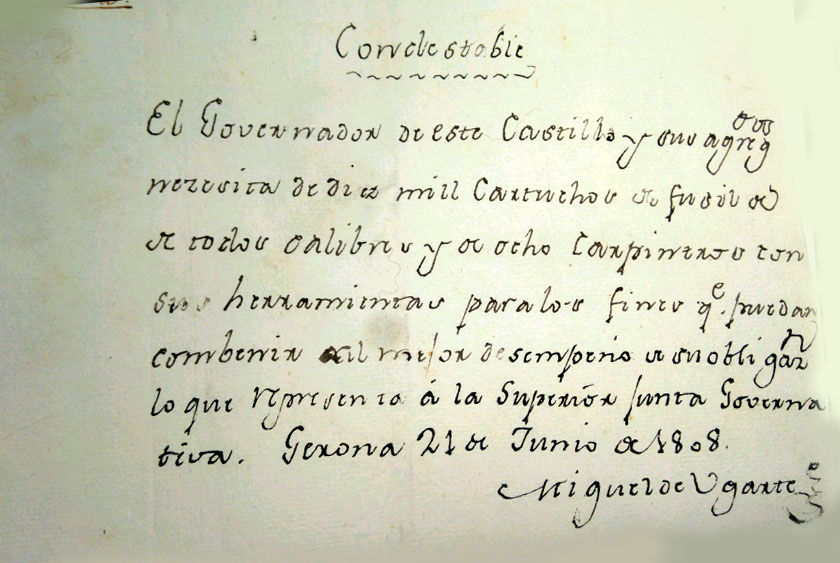 Condestable
El Governador de este Castillo y sus agreg.dos
nezesita de diez mill Cartuchos de fusil de
de todos calibres y de ocho Carpinteros con
sus herramientas para los fines q.e puedan
combenir al mejor desempeño de su obligaz.n
lo que representa á la Superiór Junta Governa
tiva. Gerona 21 de Junio de 1808.
Miguel de Ugarte